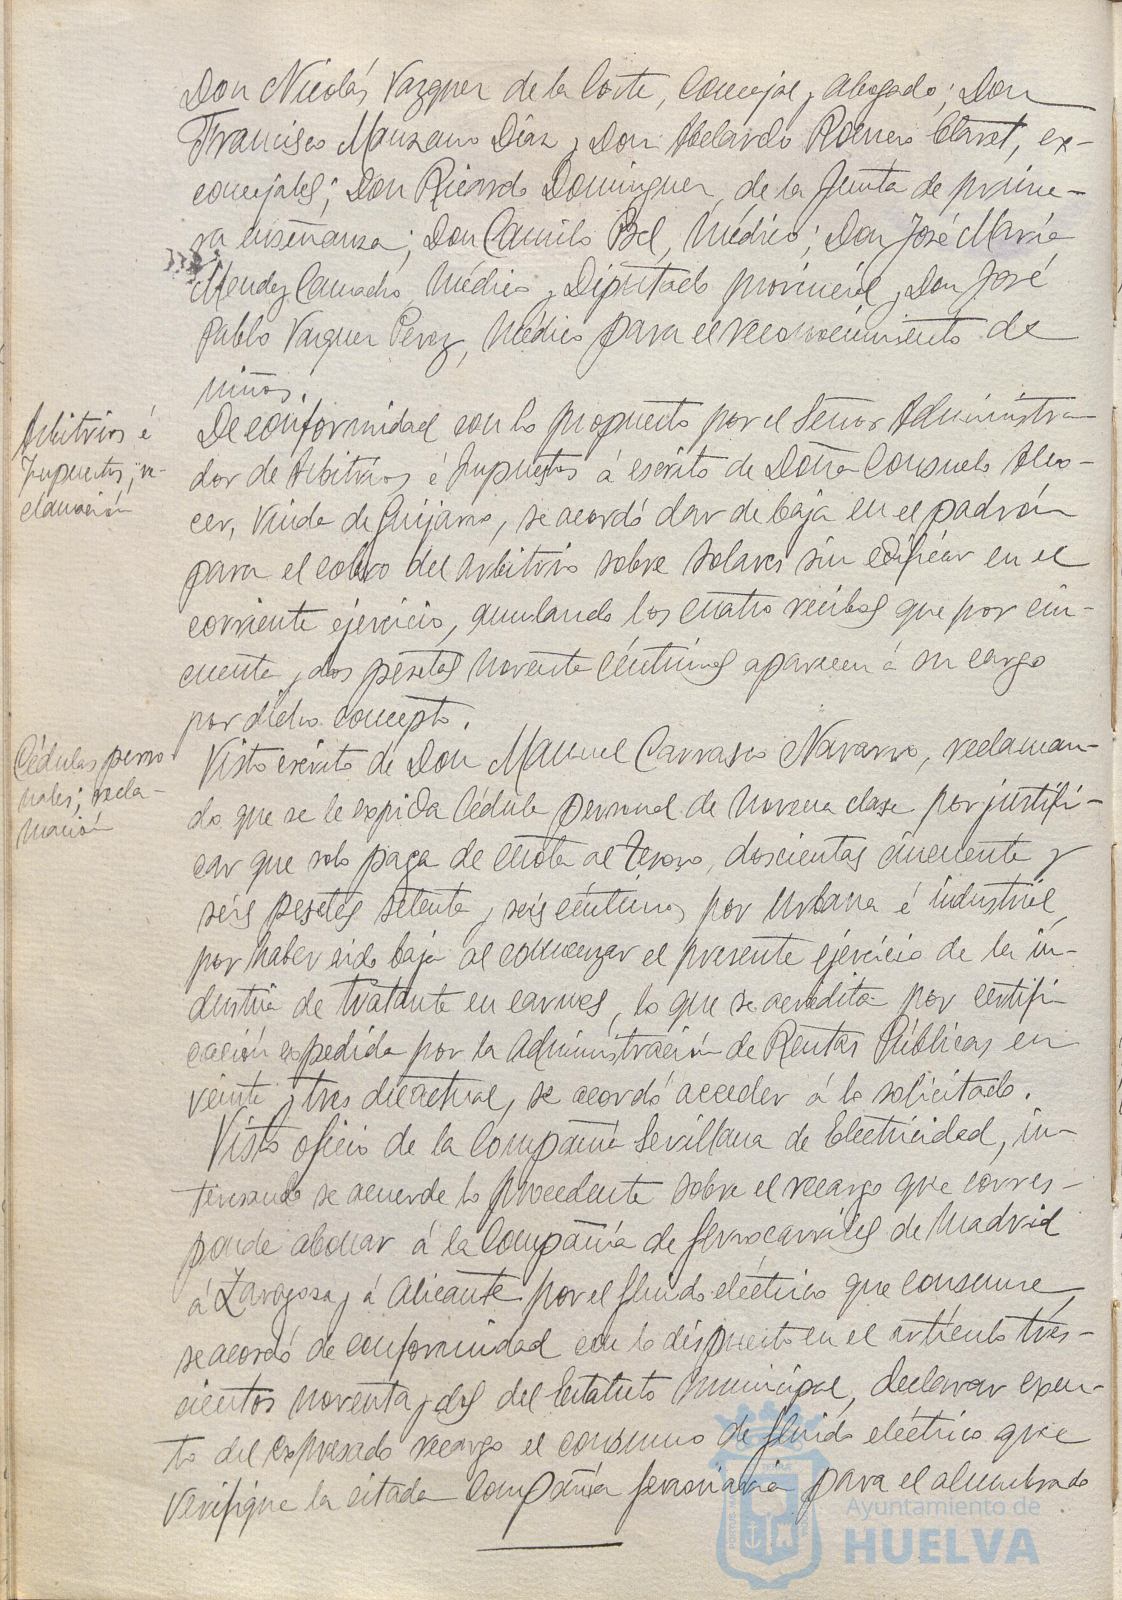 Don Nicolás Vazquez de la Corte, Concejal y Abogado; Don
Francisco Manzano Díaz y Don Abelardo Romero Claret, ex-
concejales; Don Ricardo Dominguez, de la Junta de prime-
ra enseñanza; Don Camilo Bel, Médico; Don José María
Mendez Camacho, Médico y Diputado provincial y Don José
Pablo Vazquez Perez, Médico para el reconocimiento de
niños.
Arbitrios é
Impuestos; re-
clamación
De conformidad con lo propuesto por el Señor Administra-
dor de Arbitrios é Impuestos á escrito de Doña Consuelo Alco-
cer, Viuda de Guijarro, se acordó dar de baja en el padrón
para el cobro del arbitrio sobre solares sin edificar en el
corriente ejercicio, anulando los cuatro recibos que por cin-
cuenta y dos pesetas noventa céntimos aparecen á su cargo
por dicho concepto.
Cédulas perso-
nales; recla-
mación
Visto escrito de Don Manuel Carrasco Navarro, reclaman-
do que se le expida Cédula personal de novena clase por justifi-
car que solo paga de cuota al Tesoro, doscientas cincuenta y
seis pesetas setenta y seis céntimos por Urbana é industrial,
por haber sido baja al comenzar el presente ejercicio de la in-
dustria de tratante en carnes, lo que se acredita por certifi-
cación expedida por la Administración de Rentas Públicas en
veinte y tres del actual, se acordó acceder á lo solicitado.
Visto oficio de la Compañía Sevillana de Electricidad, in-
teresando se acuerde lo procedente sobre el recargo que corres-
ponde abonar á la Compañía de ferrocarriles de Madrid
á Zaragoza y á Alicante por el fluido eléctrico que consume,
se acordó de conformidad con lo dispuesto en el artículo tres-
cientos noventa y dos del Estatuto Municipal, declarar exen-
to del expresado recargo el consumo de fluido eléctrico que
verifique la citada Compañía ferroviaria para el alumbrado
Ayuntamiento de
HUELVA